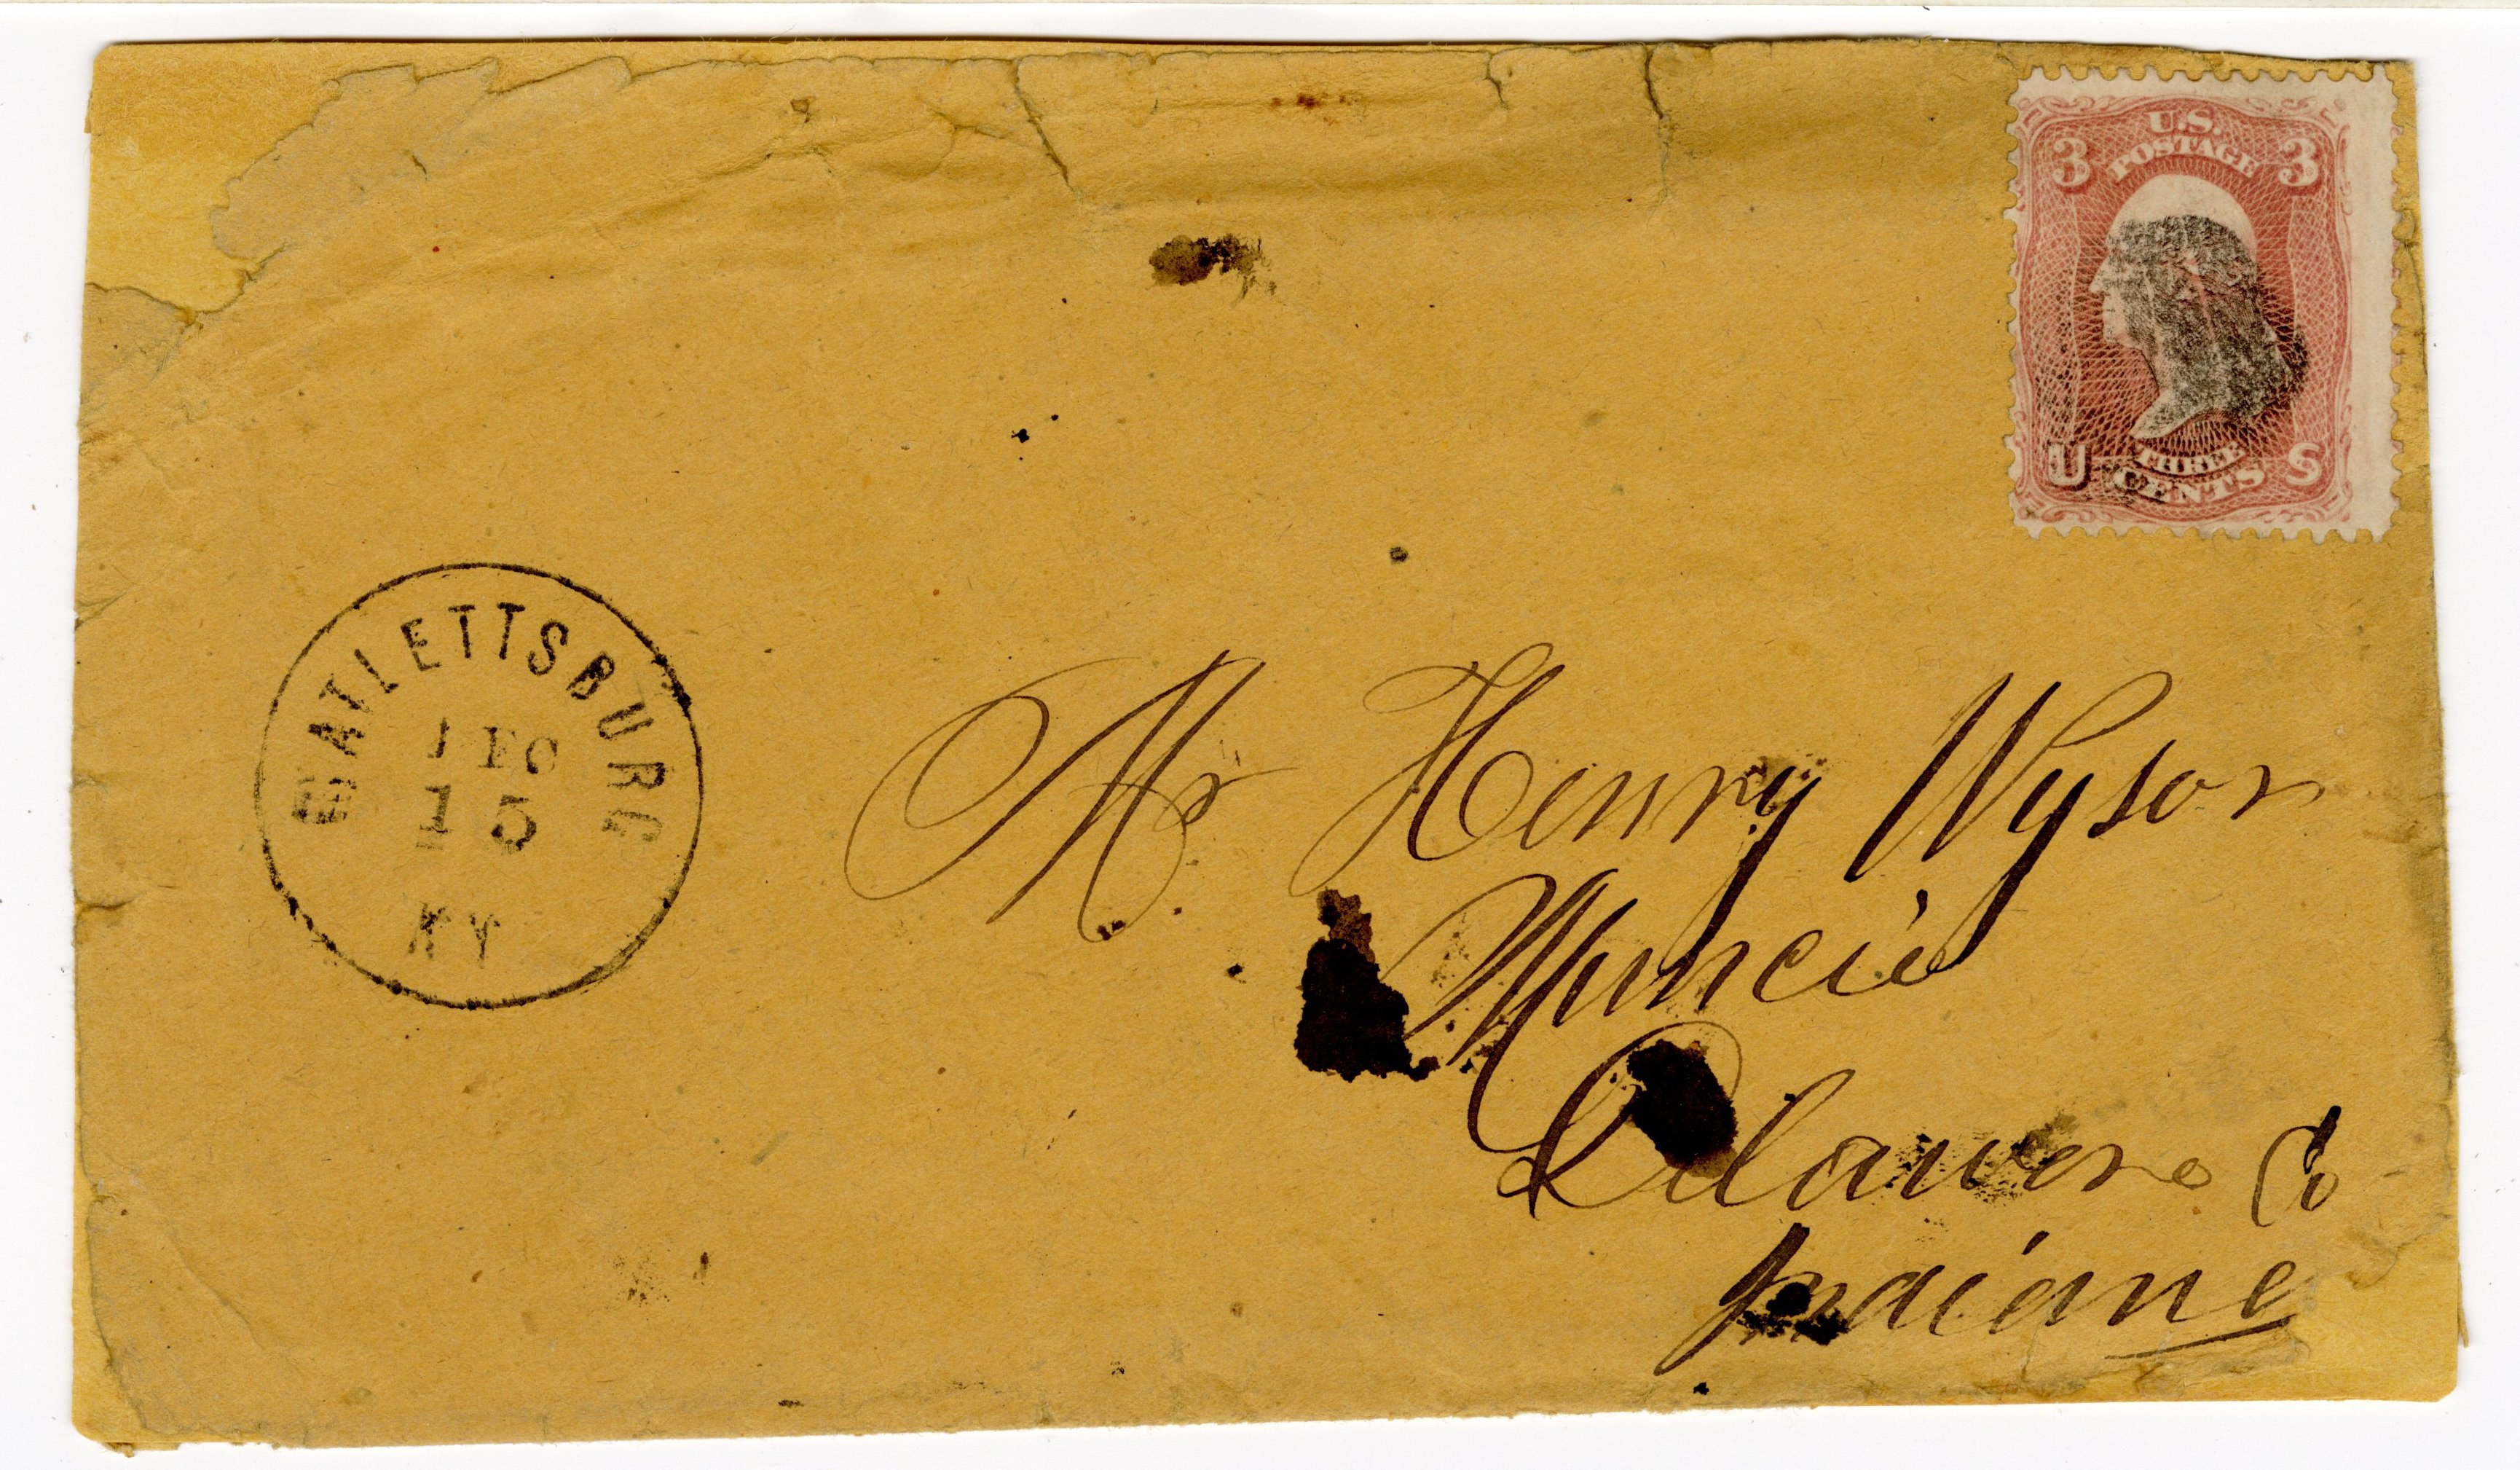 U.S.
POSTAGE
3 3
U THREE S
CENTS
CATLETTSBURG
DEC
15
KY
Mr Henry Wysor
Muncie
Delawere Co
Indiana